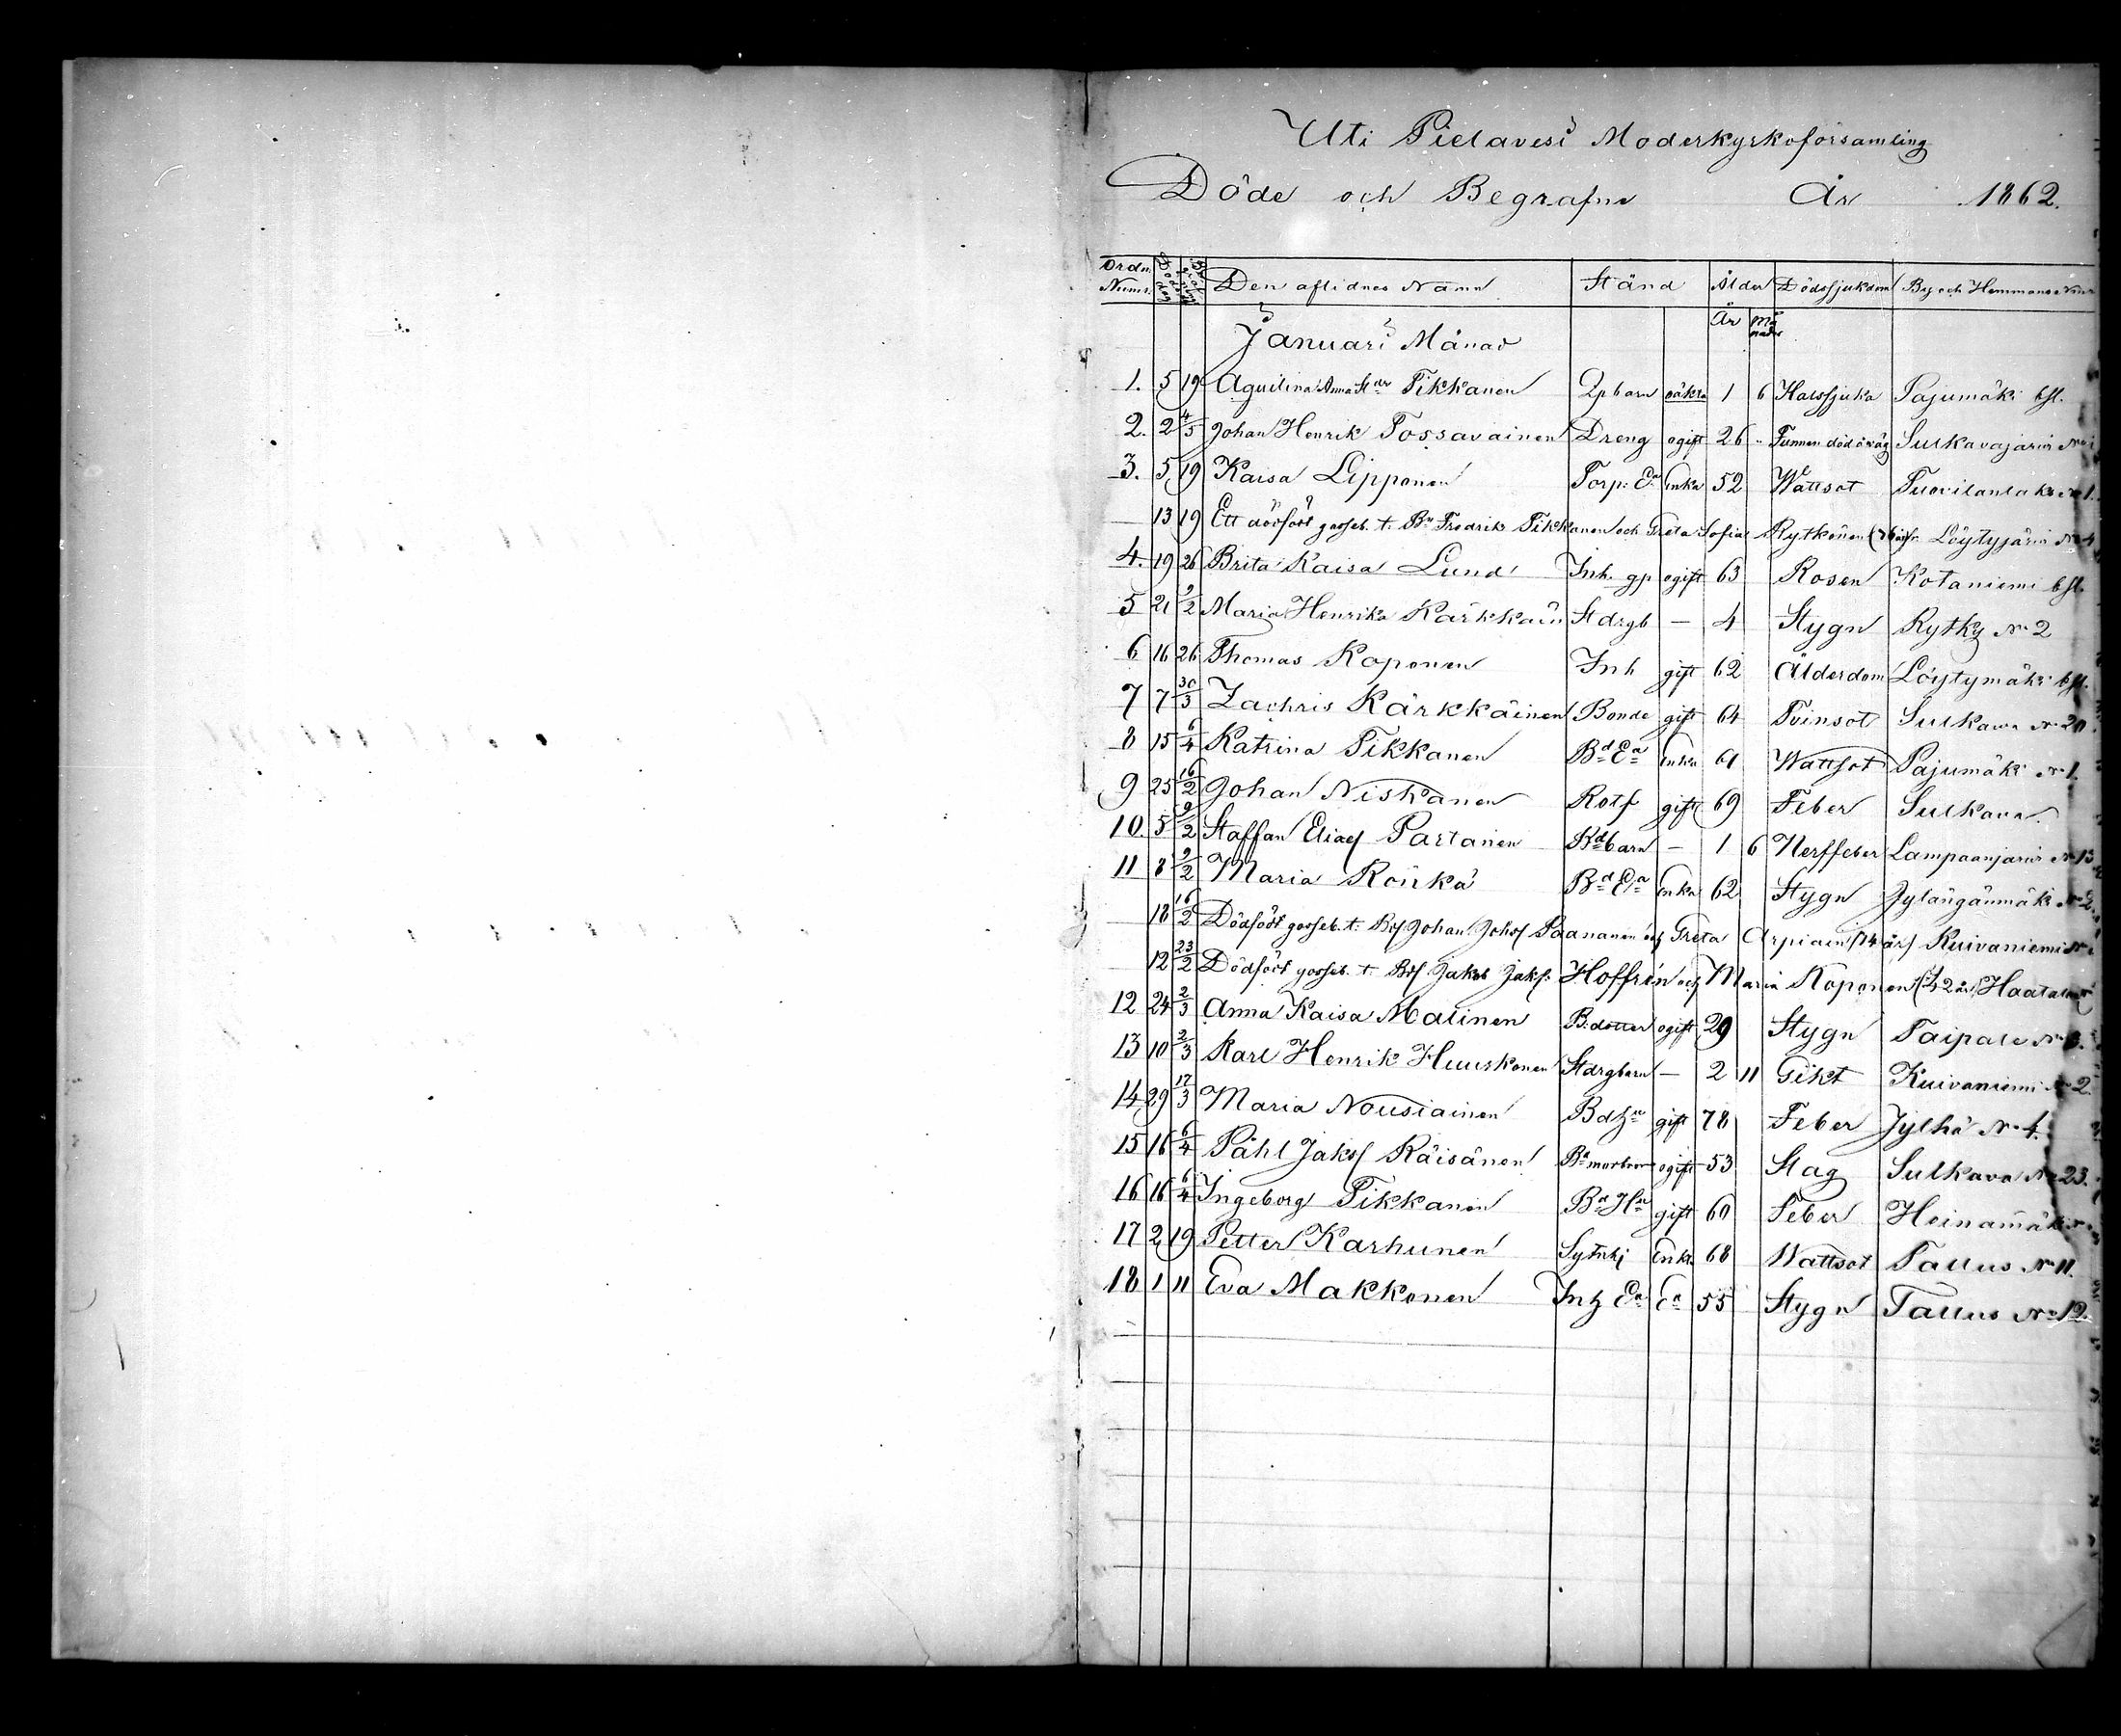 Uti Pielavesi Moderkyrkoförsamling
Döde och Begrafne År 1862.
Ordn. Numr. Döds dag Begrafnings dag Den aflidnes Namn Stånd Ålder Dödssjukdom By och Hemmanets Numr
År Månader
Januari Månad
1. 5 19 Aquilina Anna St dr Tikkanen Qpbarn oäkta 1 6 Halssjuka Pajumäki bst.
2. 2 4/5 Johan Henrik Tossavainen Dreng ogift 26 " Funnen död å väg Sulkavajärvi No
3. 5 19 Kaisa Lipponen Torp: Ea Enka 52 Wattsot Tuovilanlaks No 1.
— 13 19 Ett dödfödt gosseb. t. Bn Fredrik Tikkanen och Greta Sofia Rytkönen Löytyjärvi No 4
4. 19 26 Brita Kaisa Lund Inh. gp ogift 63 Rosen Kotaniemi bst.
5 21 9/2 Maria Henrika Kärkkäin Stdrgb — 4 Stygn Rytky No 2
6 16 26 Thomas Koponen Inh gift 62 Ålderdom Löytymäki bst.
7 7 30/3 Zachris Kärkkäinen Bonde gift 64 Tvinsot Sulkawa No 20.
8 15 6/4 Katrina Tikkanen Bd Ea Enka 61 Wattsot Pajumäki No 1.
9 25 16/2 Johan Niskanen Rotf gift 69 Feber Sulkava
10 5 9/2 Staffan Eliaes Partanen Bdbarn — 1 6 Nerffeber Lampaanjärvi No 13
11 8 9/2 Maria Rönkä Bd Ea Enka 62 Stygn Jylängänmäki No 2.
— 18 16/2 Dödfödt gosseb. t. Bs Johan Johsf Paananen och Greta Arpiain Kuivaniemi No
— 12 23/2 Dödfödt gosseb. t. Bs Jakob Jaksf. Hoffrén och Maria Koponen (42 år) Haatala
12 24 2/3 Anna Kaisa Malinen B:dotter ogift 29 Stygn Taipale No
13 10 2/3 Karl Henrik Huuskonen Stdrgbarn — 2 11 Gikt Kuivaniemi No 2.
14 29 17/3 Maria Nousiainen Bdhu gift 78 Feber Jylhä No 4.
15 16 6/4 Påhl Jaksf Räisänen Bd morbror ogift 53 Slag Sulkava No 23.
16 16 6/4 Ingeborg Tikkanen Bd Hu gift 60 Feber Heinämäki No
17 2 19 Petter Karhunen Sytnhj Enkl. 68 Wattsot Tallus No 11.
18 1 11 Eva Makkonen Inh Ea Ea 55 Stygn Tallus No 12.